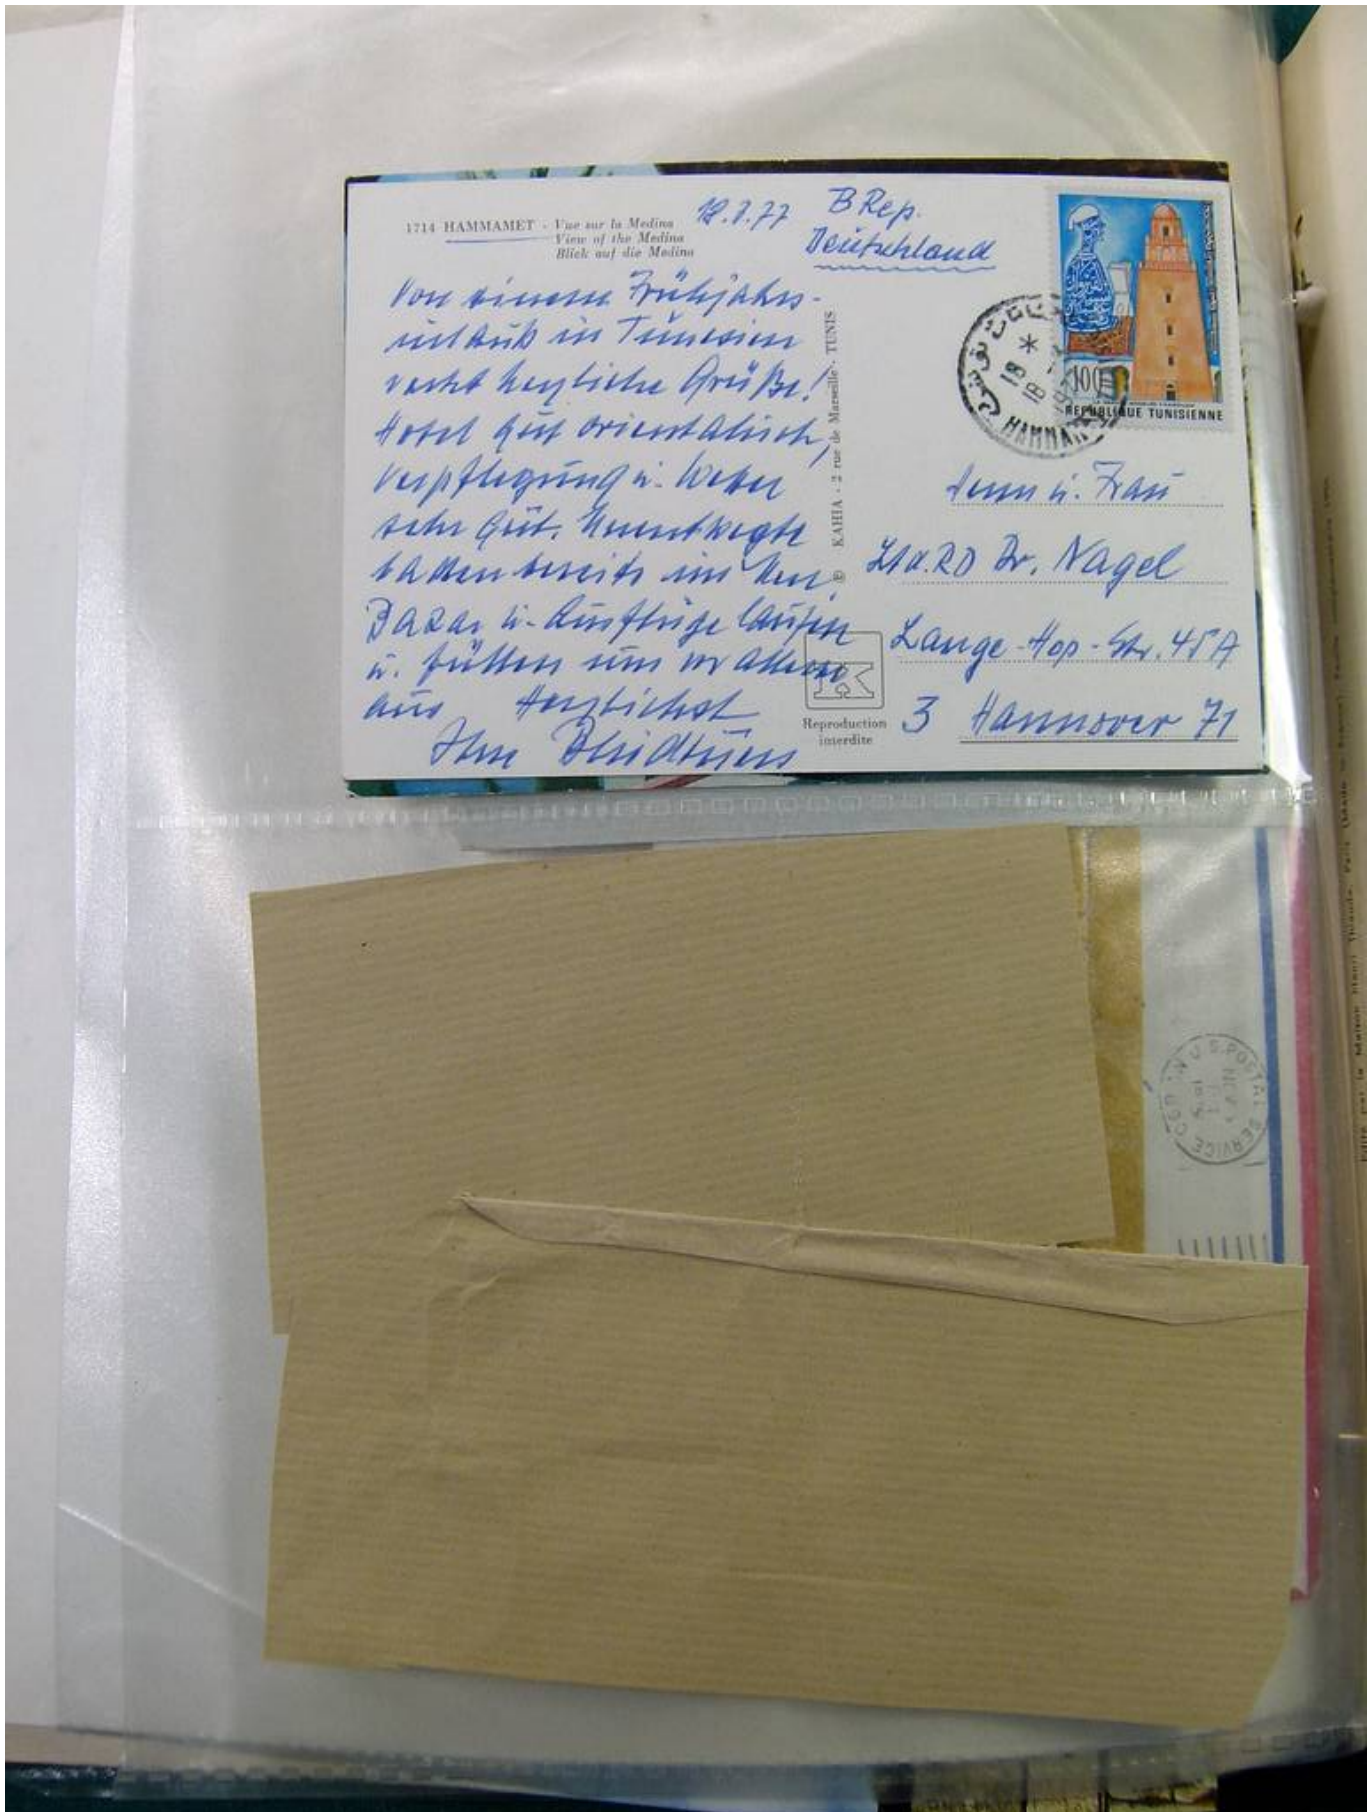 1714 HAMMAMET - Vue sur la Medina
View of the Medina
Blick auf die Medina
18.3.77
B Rep.
Deutschland
Von einem Frühjahrs-
urlaub in Tunesien
recht herzliche Grüße!
Hotel gut orientalisch,
Verpflegung u. Wetter
sehr gut. Unentwegte
baden bereits im
Bazar u. Ausflüge laufen
u. füllen uns vor allem
aus Herzlichst
Ihre
© KAHIA - 2 rue de Marseille - TUNIS
Reproduction
interdite
100
REPUBLIQUE TUNISIENNE
18 *
18
Herrn u. Frau
Ltd. RD Dr. Nagel
Lange-Hop-Str. 45A
3 Hannover 71
U.S. POSTAL SERVICE